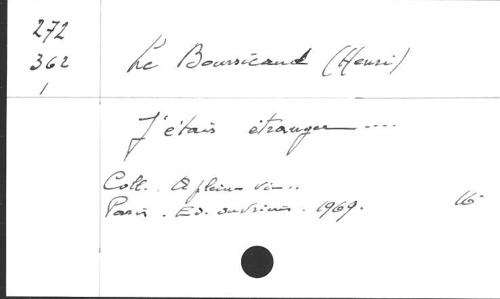 272
362
1
Le Boursicaud (Henri)
J'étais étranger ....
Coll. A pleine vie..
Paris. Ed. ouvrières. 1969. 16